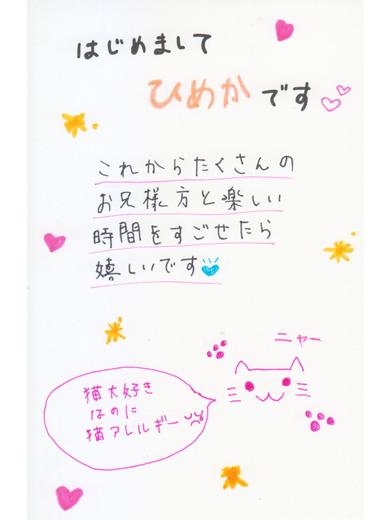 はじめまして
ひめかです
これからたくさんの
お兄様方と楽しい
時間をすごせたら
嬉しいです
ニャー
猫大好き
なのに
猫アレルギー